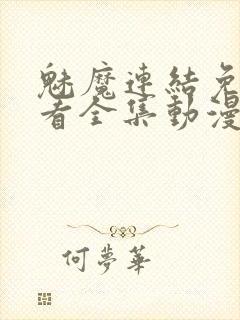 魅魔連結免
看全集動漫
何夢華